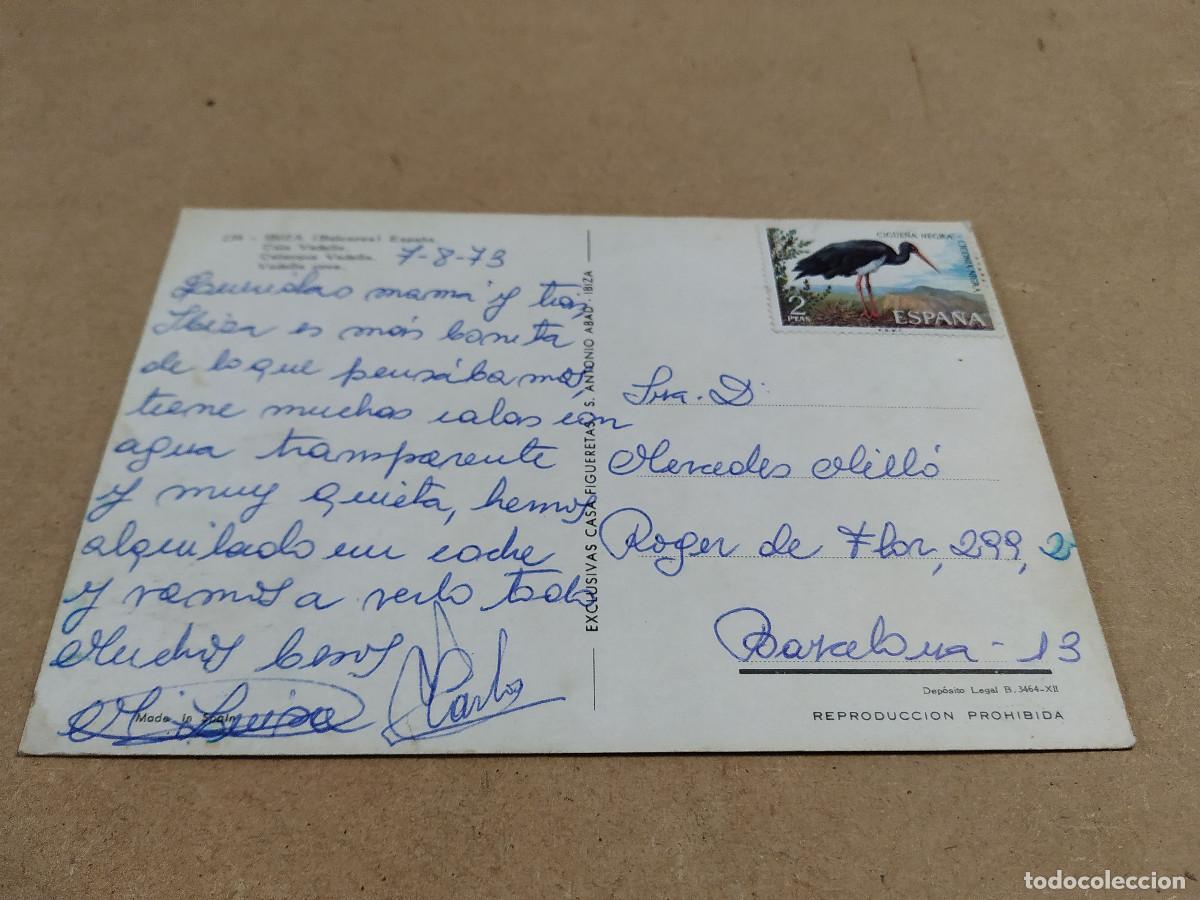 IBIZA (Baleares) España
Cala Vadella.
Calanque Vadella.
Vadella cove.
7-8-73
Queridas mamá y tías,
Ibiza es más bonita
de lo que pensábamos,
tiene muchas calas con
agua transparente
y muy quieta, hemos
alquilado un coche
y vamos a verlo todo
Muchos besos
Mª Luisa Carlos
Made in Spain
EXCLUSIVAS CASA FIGUERETAS - S. ANTONIO ABAD - IBIZA
CIGÜEÑA NEGRA
CICONIA NIGRA
2
PTAS
ESPAÑA
Sra. Dª
Mercedes Milló
Roger de Flor, 299, 2
Barcelona - 13
Depósito Legal B. 3464-XII
REPRODUCCION PROHIBIDA
todocoleccion